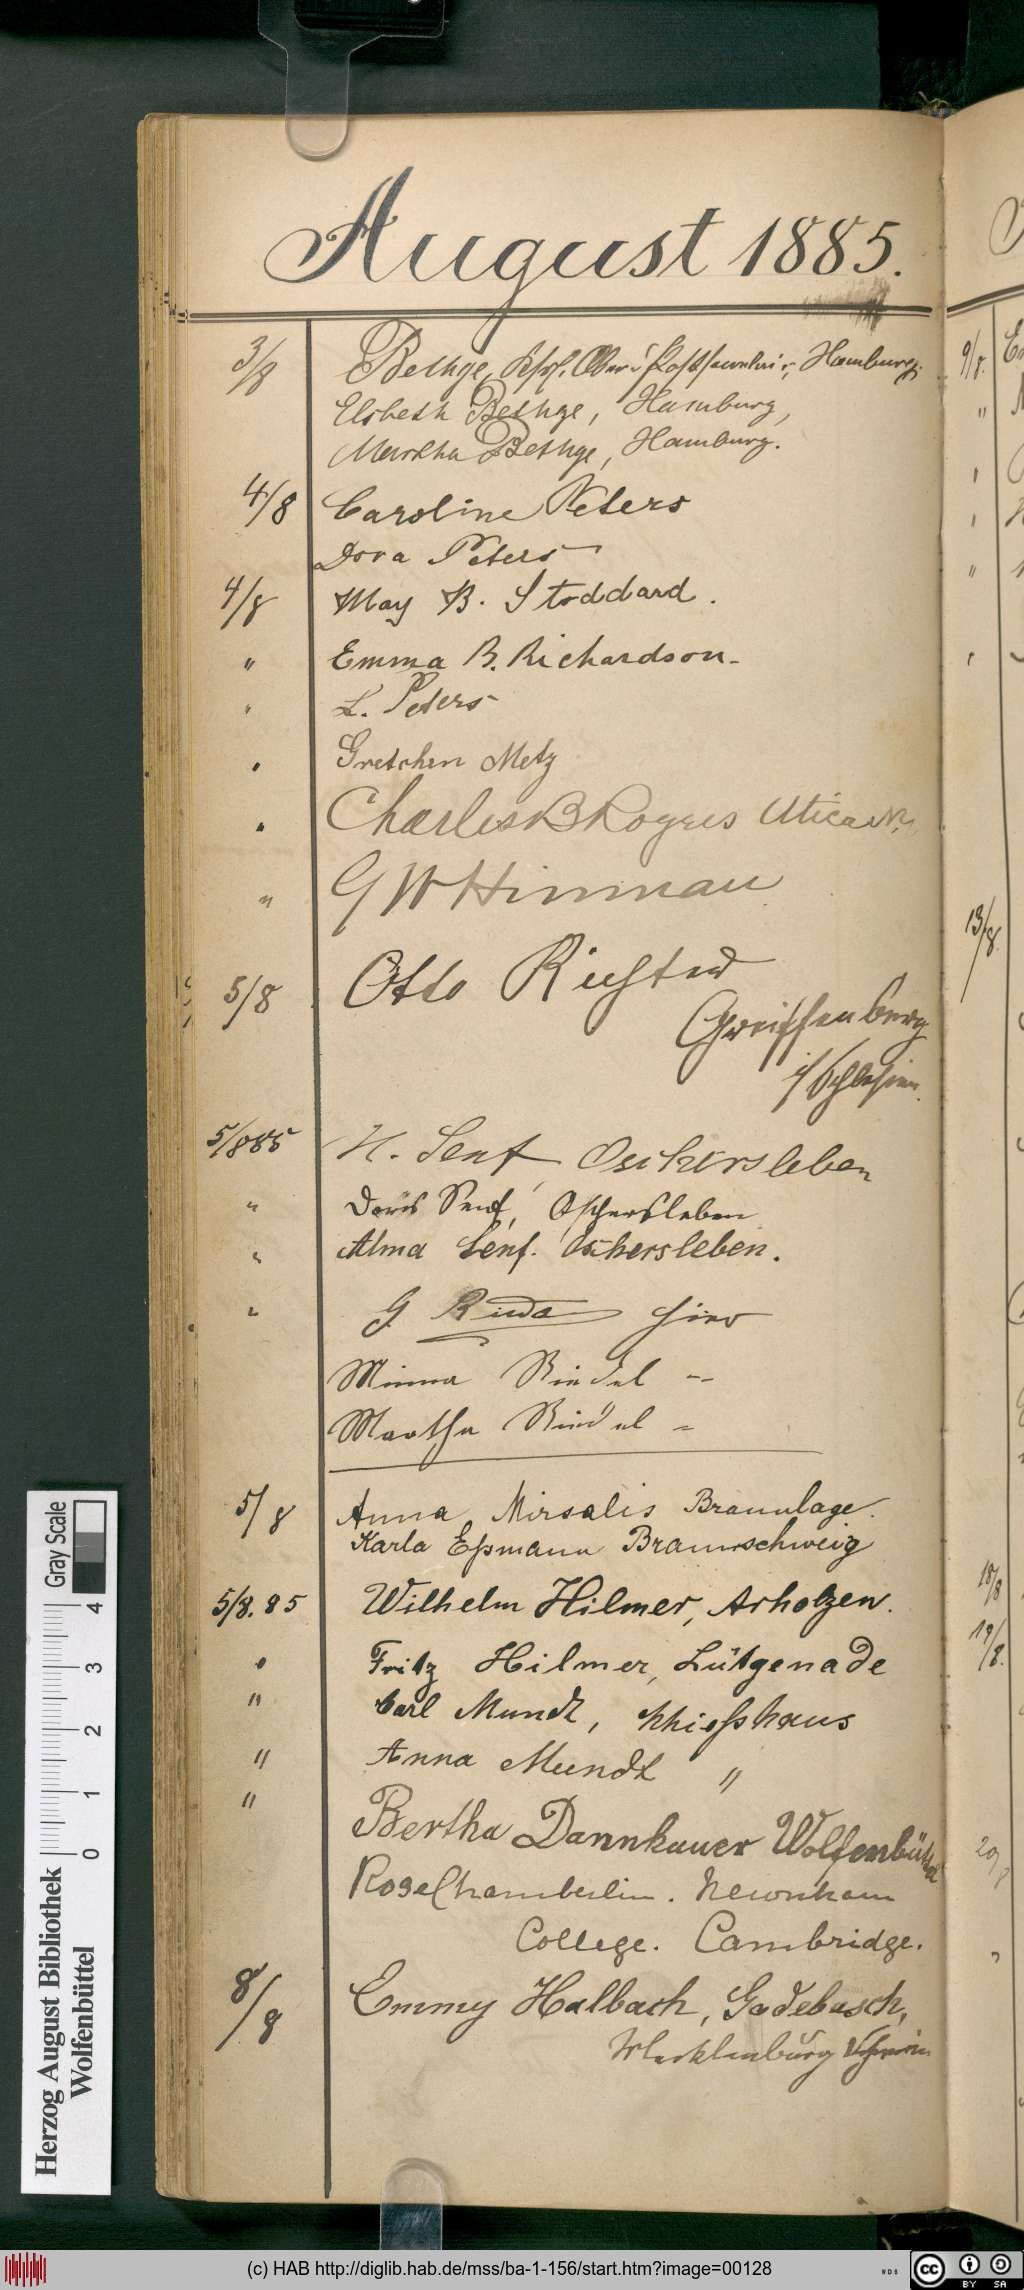 August 1885.
3/8 Bethge, Hamburg.
Elsbeth Bethge, Hamburg,
Martha Bethge, Hamburg.
4/8 Caroline Peters
Dora Peters
4/8 May B. Stoddard.
" Emma B. Richardson.
" L. Peters
" Gretchen Metz
" Charles B Rogers Utica N.
" G W Hinman
5/8 Otto
Greiffenberg
i/Schlesien.
5/885 H. Senf, Oschersleben
" Doris Senf, Oschersleben
" Alma Senf. Oschersleben.
" G hier
Minna Riedel "
Martha Riedel "
5/8 Anna Mirsalis Braunlage.
Karla Eßmann Braunschweig
5/8. 85 Wilhelm Hilmer, Arholzen.
" Fritz Hilmer, Lütgenade
" Carl Mundt, Schießhaus
" Anna Mundt "
" Bertha Dannhauer Wolfenbüttel
Rose Chamberlin. Newnham
College. Cambridge.
8/8 Emmy Halbach, Gadebusch,
Mecklenburg Schwerin
9/8.
13/8.
18/8
19/8.
Gray Scale
4
3
2
1
0
Herzog August Bibliothek
Wolfenbüttel
(c) HAB http://diglib.hab.de/mss/ba-1-156/start.htm?image=00128
WDB
cc
BY SA